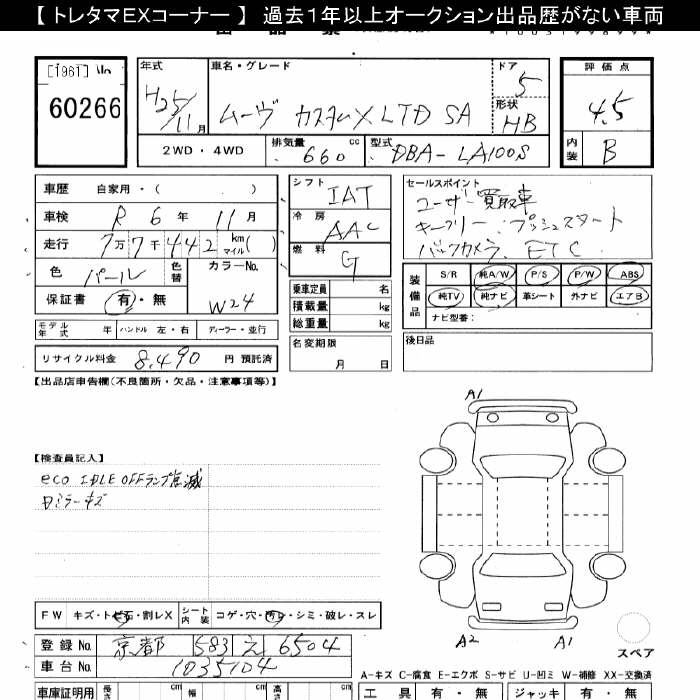 【 トレタマEXコーナー 】 過去1年以上オークション出品歴がない車両
[1961] No
60266
年式
H25/11月
車名・グレード
ムーヴ カスタムX LTD SA
ドア
5
形状
HB
評価点
4.5
内装
B
2WD・4WD
排気量 660 cc
型式 DBA-LA100S
車歴 自家用・( )
車検 R 6 年 11 月
走行 7万7千442 km マイル( )
色 パール 色替
カラーNo. W24
保証書 有・無
モデル年式 年 ハンドル 左・右 ディーラー・並行
リサイクル料金 8,490 円 預託済
シフト IAT
冷房 AAC
燃料 G
乗車定員 名
積載量 kg
総重量 kg
名変期限
月 日
セールスポイント
ユーザー買取車
キーフリー プッシュスタート
バックカメラ ETC
装備品
S/R 純A/W P/S P/W ABS
純TV 純ナビ 革シート 外ナビ エアB
ナビ型番:
後日品
【出品店申告欄(不良箇所・欠品・注意事項等)】
【検査員記入】
eco IDLE OFFランプ点滅
ミラーキズ
A1
A2
A1
スペア
FW キズ・トビ石・割レX
シート内装 コゲ・穴・汚レ・シミ・破レ・スレ
登録No. 京都 583 え 6504
車台No. 1035104
A-キズ C-腐食 E-エクボ S-サビ U-凹ミ W-補修 XX-交換済
車庫証明用 長さ cm 幅 cm 高 cm
工具 有・無 ジャッキ 有・無